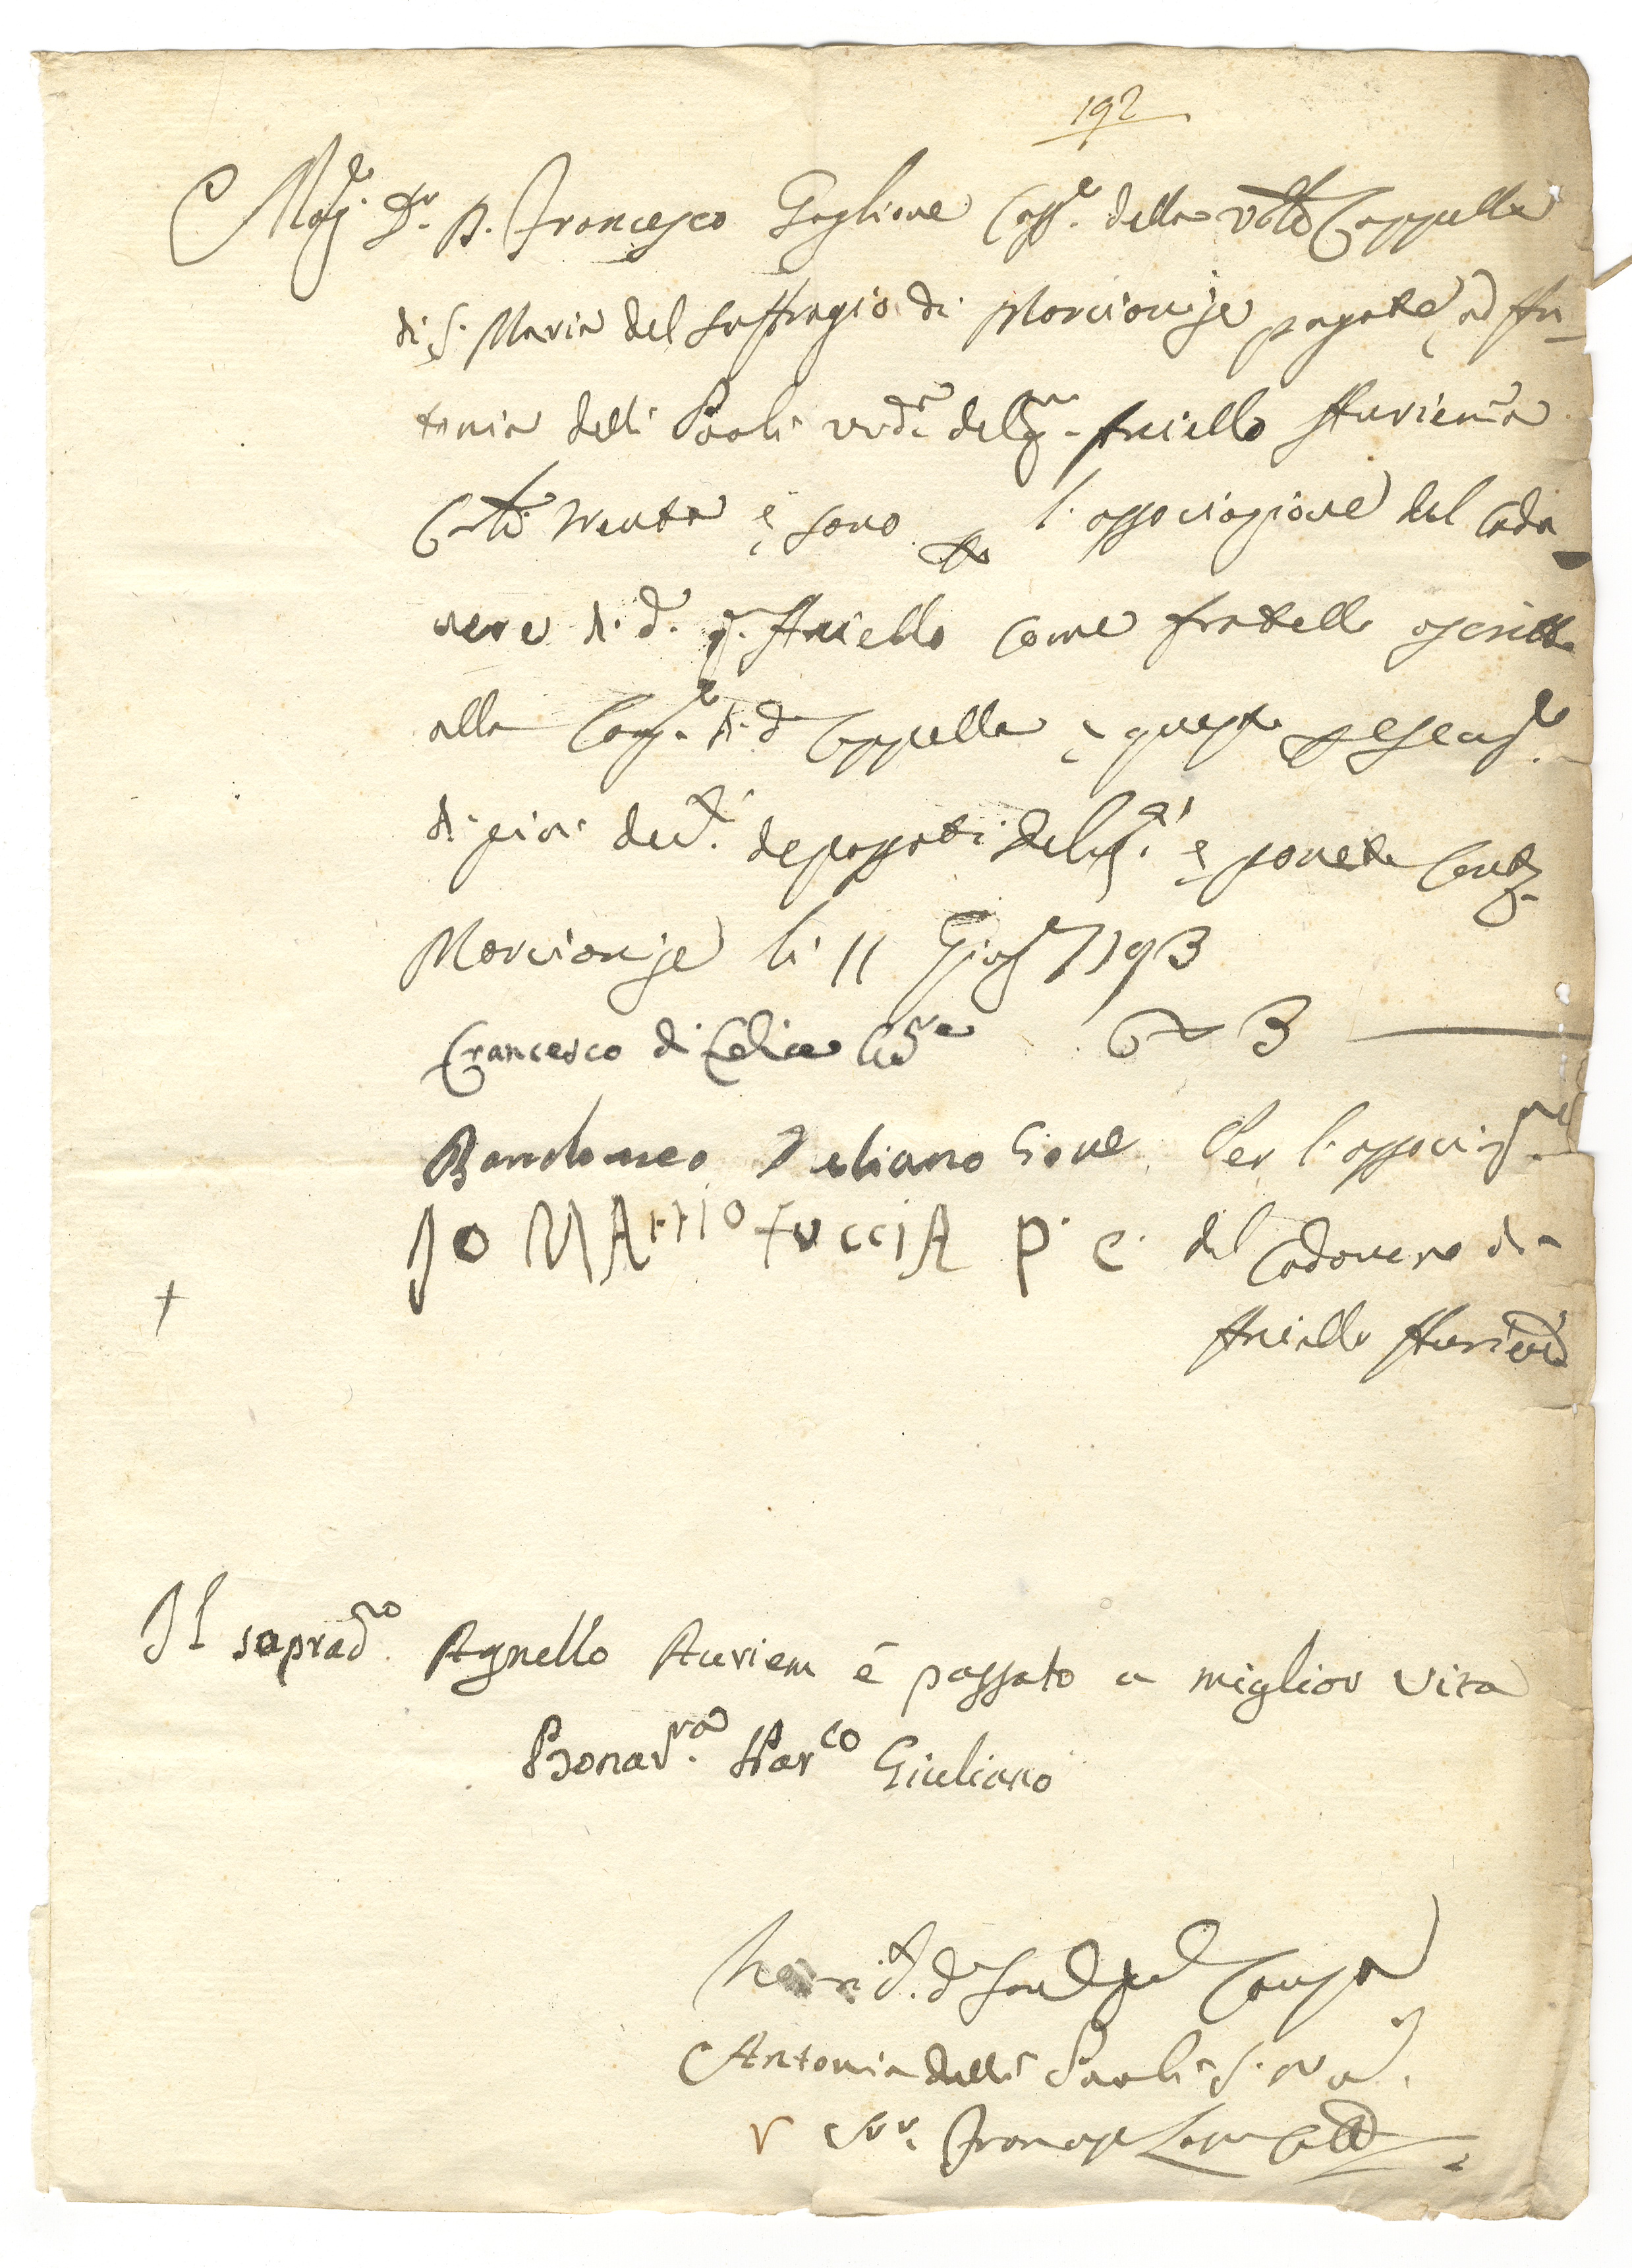 192
Mag.co Dr. D. Francesco Gaglione Cass.re della Ven.le Cappella
di S. Maria del Suffragio di Marcianise pagate ad An-
tonia delli Paoli ved.a del q.m Aniello Auriemma
Carlini trenta e sono per l'associazione del Cada
vere di d.o q.m Aniello come fratello ascritto
alla Cong.ne di d.a Cappella e queste per esecuz.ne
di più decr.ti de passati Deleg.ti e ponete Conto
Marcianise li 11 Giug.o 1793
Francesco di Felice D. 3
Bartolomeo Iuliano Per l'associaz.ne
Io MAttio fucciA P. C. del Cadavere di
Aniello Auriema
+
Il soprad.to Agnello Auriem è passato a miglior vita
Bonav.ra Par.co Giuliano
Antonia delli Paoli
Francesco